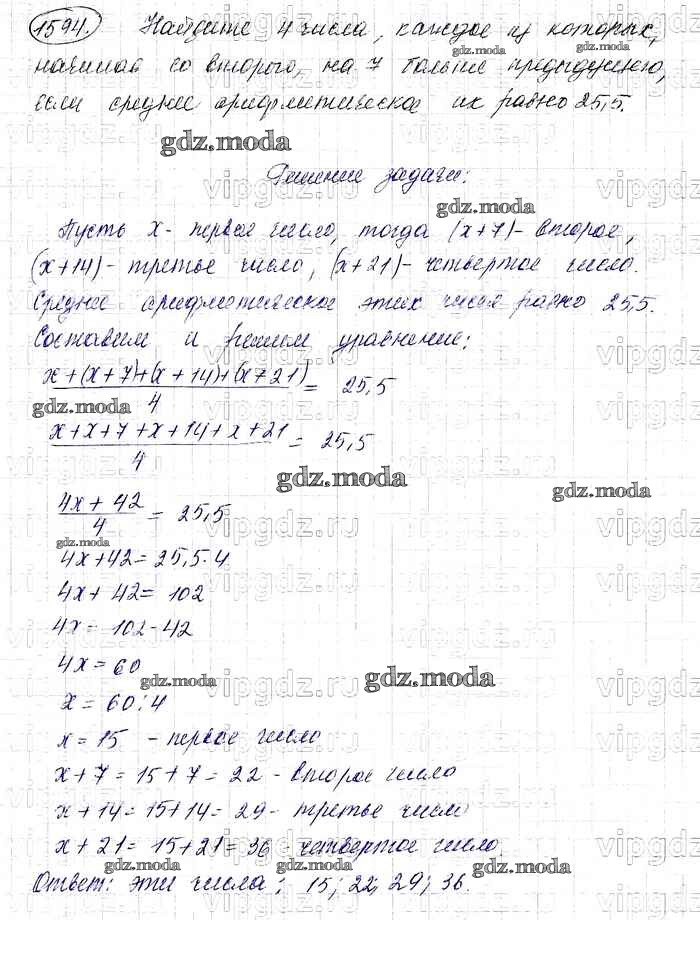 1594. Найдите 4 числа, каждое из которых,
начиная со второго, на 7 больше предыдущего,
если среднее арифметическое их равно 25,5.
gdz.moda
Решение задачи:
Пусть x - первое число, тогда (x+7) - второе,
(x+14) - третье число, (x+21) - четвертое число.
Среднее арифметическое этих чисел равно 25,5.
Составим и решим уравнение:
x+(x+7)+(x+14)+(x+21)/4 = 25,5
gdz.moda
x+x+7+x+14+x+21/4 = 25,5
gdz.moda
4x+42/4 = 25,5
gdz.moda
4x+42=25,5·4
4x+42=102
4x=102-42
4x=60
gdz.moda
x=60:4
x=15 - первое число
x+7=15+7=22 - второе число
x+14=15+14=29 - третье число
x+21=15+21=36 - четвертое число
gdz.moda
Ответ: эти числа: 15; 22; 29; 36.